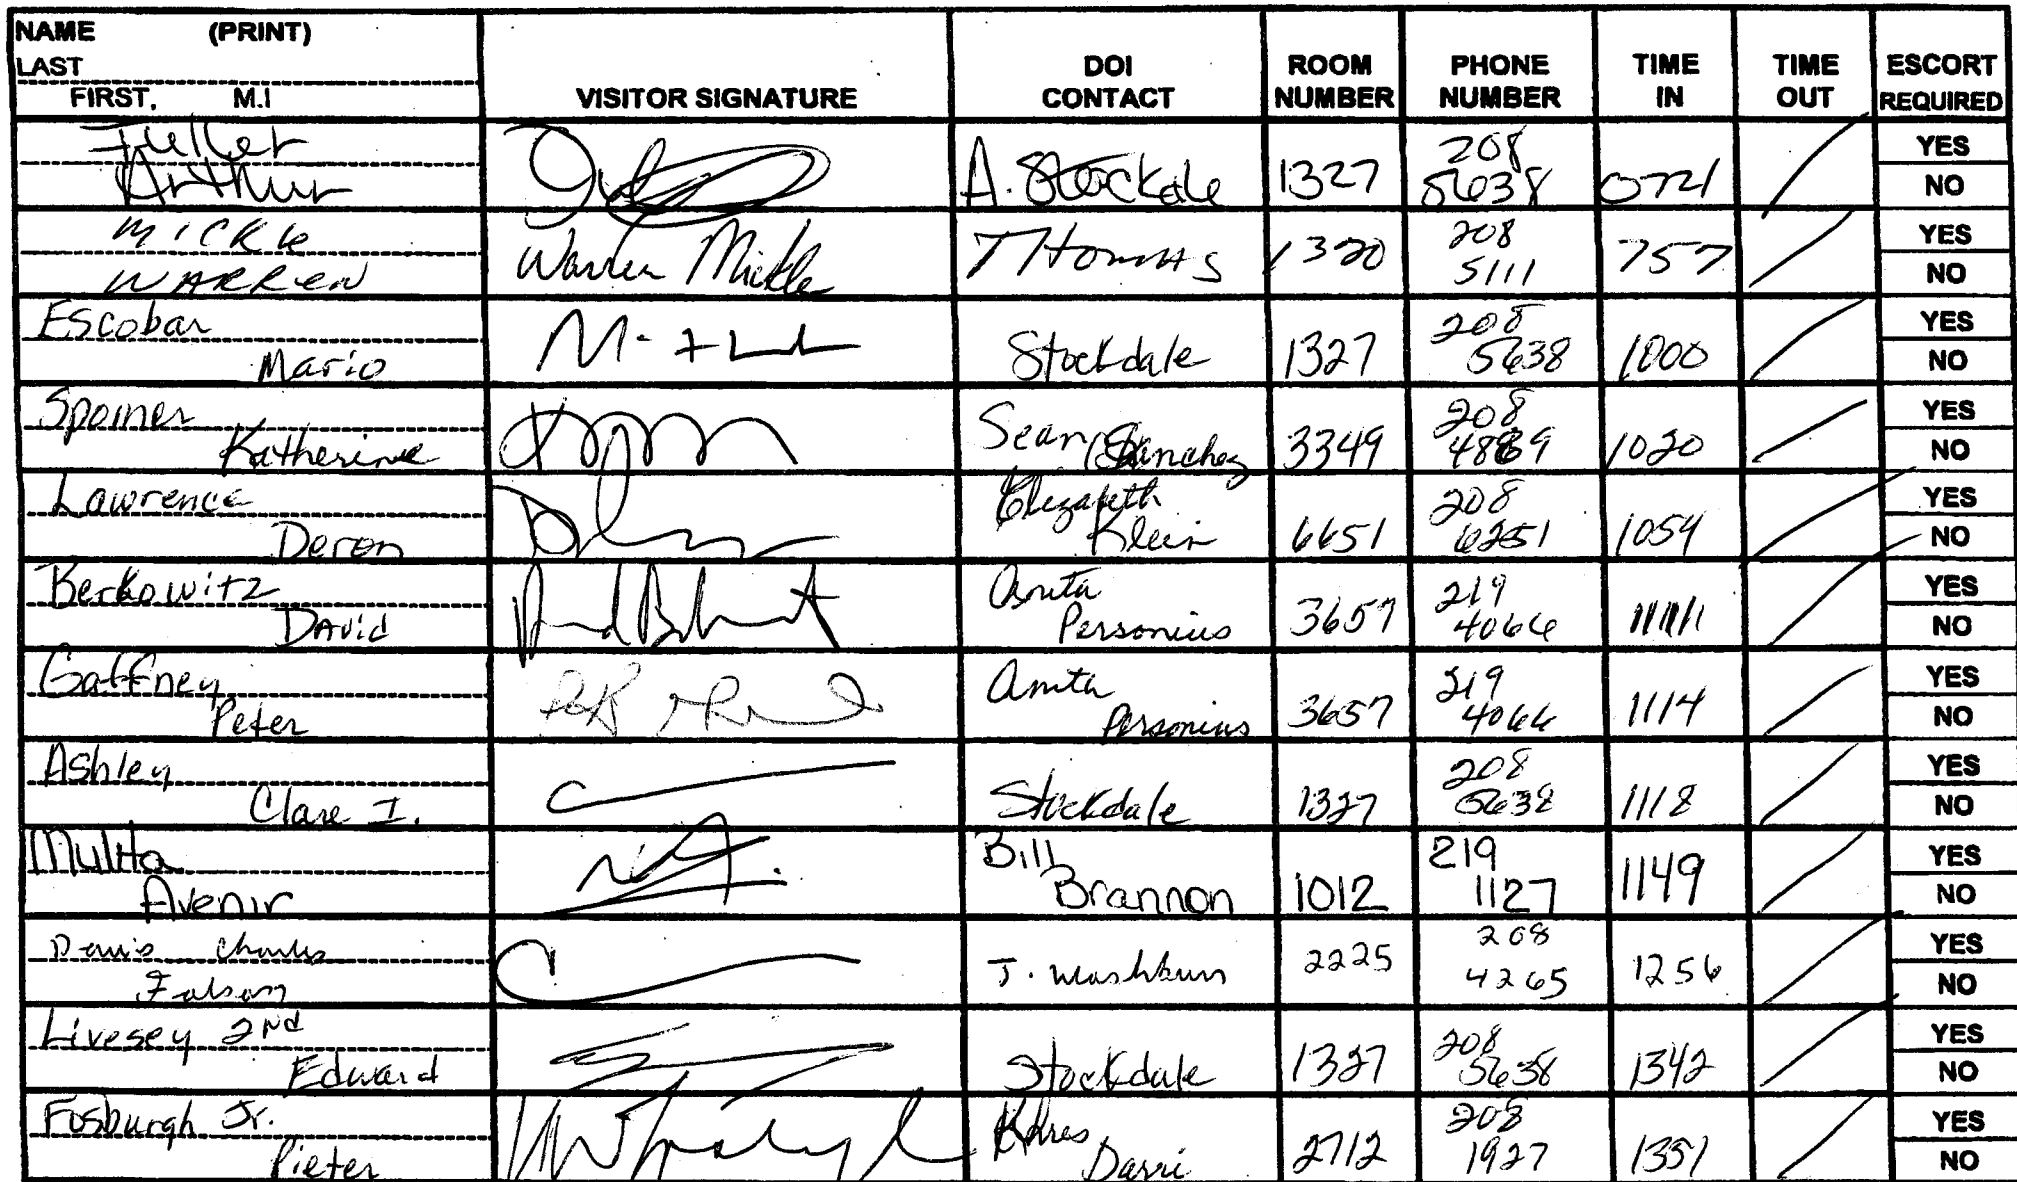 NAME (PRINT)
LAST
FIRST, M.I
VISITOR SIGNATURE
DOI CONTACT
ROOM NUMBER
PHONE NUMBER
TIME IN
TIME OUT
ESCORT REQUIRED
Fuller
Arthur
A. Stockdale 1327 208 5638 0721 YES NO
MICKLE
WARREN
Warren Mickle THOMAS 1320 208 5111 757 YES NO
Escobar
Mario
Stockdale 1327 208 5638 1000 YES NO
Katherine
Sean Sanchez 3349 208 1020 YES NO
Lawrence
Deron
Elizabeth Klein 6651 208 1054 YES NO
Berkowitz
David
Anita Personius 3657 219 4066 YES NO
Gaffney
Peter
Anita Personius 3657 219 4066 1114 YES NO
Ashley
Clare I.
Stockdale 1327 208 5638 1118 YES NO
Avenir
Bill Brannon 1012 219 1127 1149 YES NO
Davis Charles
J. Washburn 2225 208 4265 1256 YES NO
Livesey 2nd
Edward
Stockdale 1327 208 5638 1342 YES NO
Fosburgh Jr.
Pieter
2712 208 1927 1351 YES NO